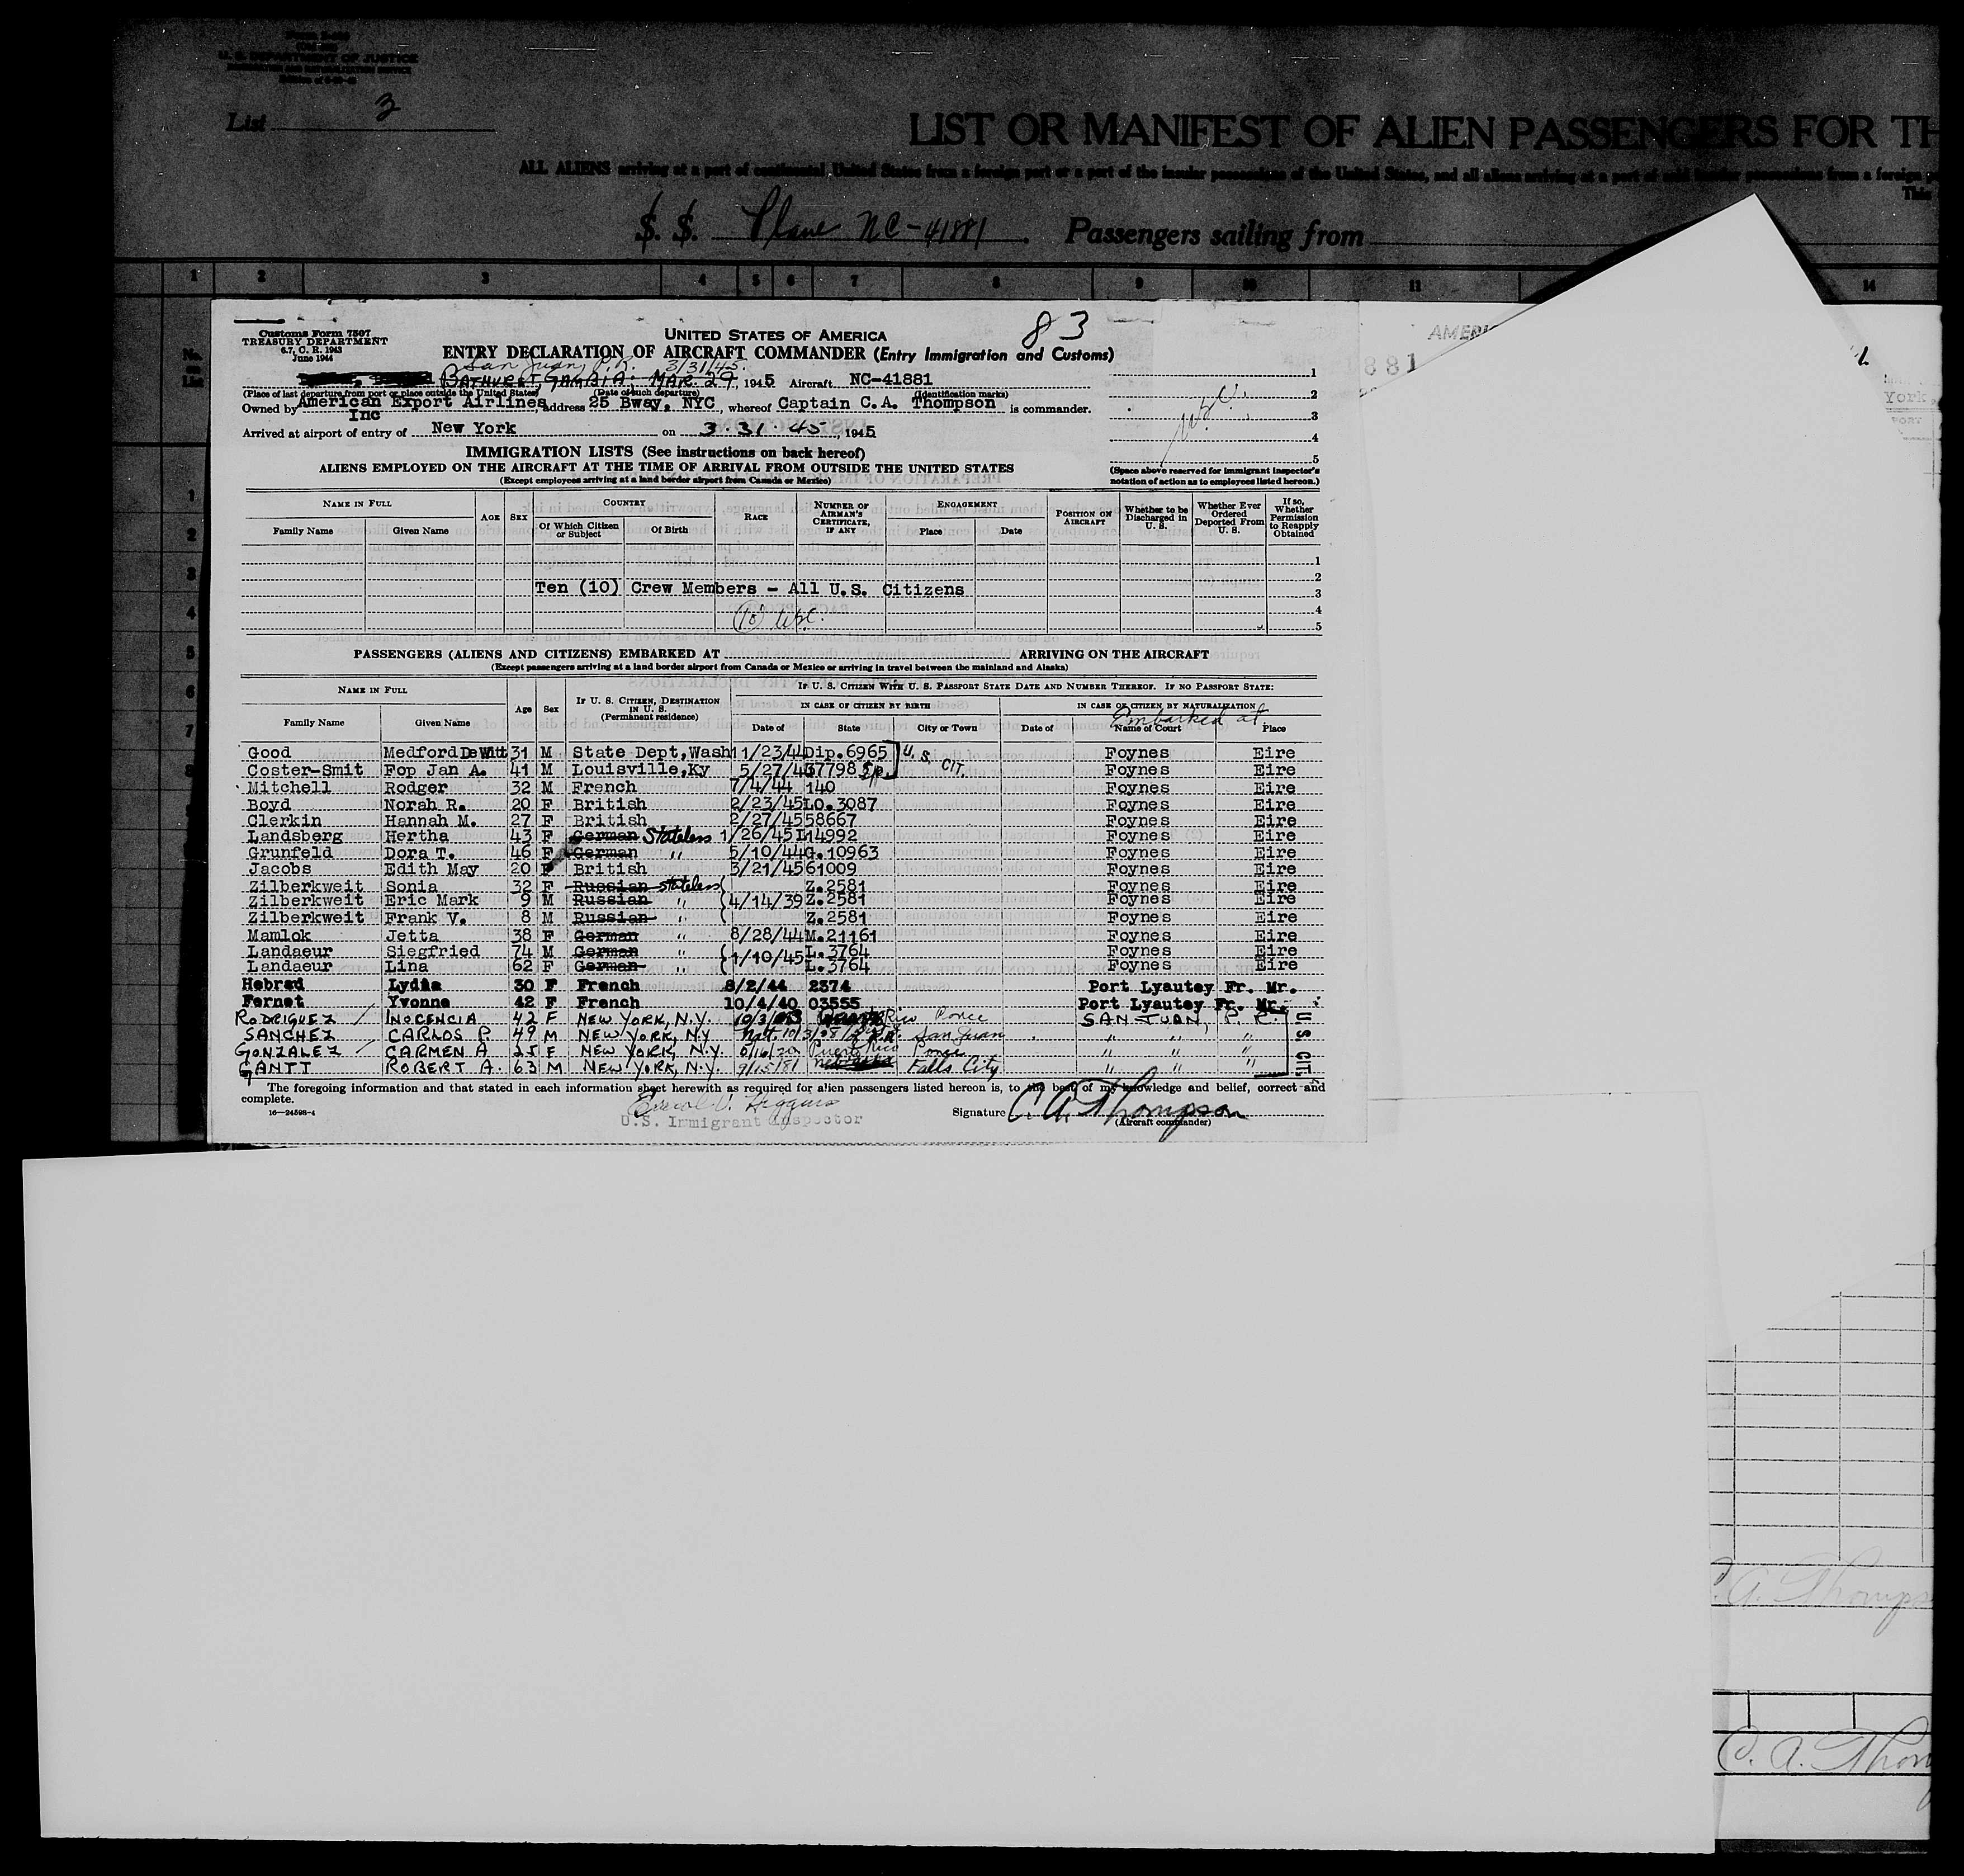 U. S. DEPARTMENT OF JUSTICE
List 3
LIST OR MANIFEST OF ALIEN PASSENGERS FOR TH
ALL ALIENS arriving at a port of continental United States from a foreign port or a port of the insular possessions of the United States, and all aliens arriving at a port of said insular possessions from a foreign
This
S. S. Plane NC-41881. Passengers sailing from
1 2 3 4 5 6 7 8 9 10 11 14
No. on List
Customs Form 7507
TREASURY DEPARTMENT
6.7, C. R. 1943
June 1944
UNITED STATES OF AMERICA
83
ENTRY DECLARATION OF AIRCRAFT COMMANDER (Entry Immigration and Customs)
San Juan, P.R. 3/31/45.
BATHURST, GAMBIA; MAR. 29, 1945 Aircraft NC-41881
(Place of last departure from port or place outside the United States) (Date of such departure) (Identification marks)
Owned by American Export Airlines Inc address 25 Bway, NYC, whereof Captain C.A. Thompson is commander.
Arrived at airport of entry of New York on 3·31·45, 1945
IMMIGRATION LISTS (See instructions on back hereof)
ALIENS EMPLOYED ON THE AIRCRAFT AT THE TIME OF ARRIVAL FROM OUTSIDE THE UNITED STATES
(Except employees arriving at a land border airport from Canada or Mexico)
1
2
3
4
5
(Space above reserved for immigrant inspector's notation of action as to employees listed hereon.)
NAME IN FULL AGE SEX COUNTRY RACE NUMBER OF AIRMAN'S CERTIFICATE, IF ANY ENGAGEMENT POSITION ON AIRCRAFT Whether to be Discharged in U. S. Whether Ever Ordered Deported From U. S. If so, Whether Permission to Reapply Obtained
Family Name Given Name Of Which Citizen or Subject Of Birth Place Date
1
2
Ten (10) Crew Members - All U.S. Citizens 3
(10) USC. 4
5
PASSENGERS (ALIENS AND CITIZENS) EMBARKED AT ARRIVING ON THE AIRCRAFT
(Except passengers arriving at a land border airport from Canada or Mexico or arriving in travel between the mainland and Alaska)
NAME IN FULL Age Sex IF U. S. CITIZEN, DESTINATION IN U. S. (Permanent residence) IF U. S. CITIZEN WITH U. S. PASSPORT STATE DATE AND NUMBER THEREOF. IF NO PASSPORT STATE:
IN CASE OF CITIZEN BY BIRTH IN CASE OF CITIZEN BY NATURALIZATION
Embarked at
Family Name Given Name Date of State City or Town Date of Name of Court Place
Good Medford DeWitt 31 M State Dept, Wash 11/23/44 Dip.6965 U.S. CIT. Foynes Eire
Coster-Smit Fop Jan A. 41 M Louisville,Ky 5/27/43 7798 Foynes Eire
Mitchell Rodger 32 M French 7/4/44 140 Foynes Eire
Boyd Norah R. 20 F British 2/23/45 LO.3087 Foynes Eire
Clerkin Hannah M. 27 F British 2/27/45 58667 Foynes Eire
Landsberg Hertha 43 F German Stateless 1/26/45 L14992 Foynes Eire
Grunfeld Dora T. 46 F German " 5/10/44 G.10963 Foynes Eire
Jacobs Edith May 20 F British 3/21/45 61009 Foynes Eire
Zilberkweit Sonia 32 F Russian stateless Z.2581 Foynes Eire
Zilberkweit Eric Mark 9 M Russian " 4/14/39 Z.2581 Foynes Eire
Zilberkweit Frank V. 8 M Russian " Z.2581 Foynes Eire
Mamlok Jetta 38 F German " 8/28/44 M.21161 Foynes Eire
Landaeur Siegfried 74 M German " 1/10/45 L.3764 Foynes Eire
Landaeur Lina 62 F German " L.3764 Foynes Eire
Hebrad Lydia 30 F French 8/2/44 2374 Port Lyautey Fr. Mr.
Fernet Yvonne 42 F French 10/4/40 03555 Port Lyautey Fr. Mr.
RODRIGUEZ INOCENCIA 42 F NEW YORK, N.Y. Rico Ponce SAN JUAN, P. R.
SANCHEZ CARLOS P. 49 M NEW YORK, N.Y San Juan " " "
GONZALEZ CARMEN A 25 F NEW YORK, N.Y. 5/16/20 Puerto Rico Ponce " " "
GANTT ROBERT A. 63 M NEW YORK, N.Y. 9/15/81 Nebraska Falls City " " "
U S CIT.
The foregoing information and that stated in each information sheet herewith as required for alien passengers listed hereon is, to the best of my knowledge and belief, correct and
complete.
16—24598-4
U.S. Immigrant Inspector
Signature C. A. Thompson
(Aircraft commander)
881
York,
PORT
C. A. Thomps
C. A. Thom